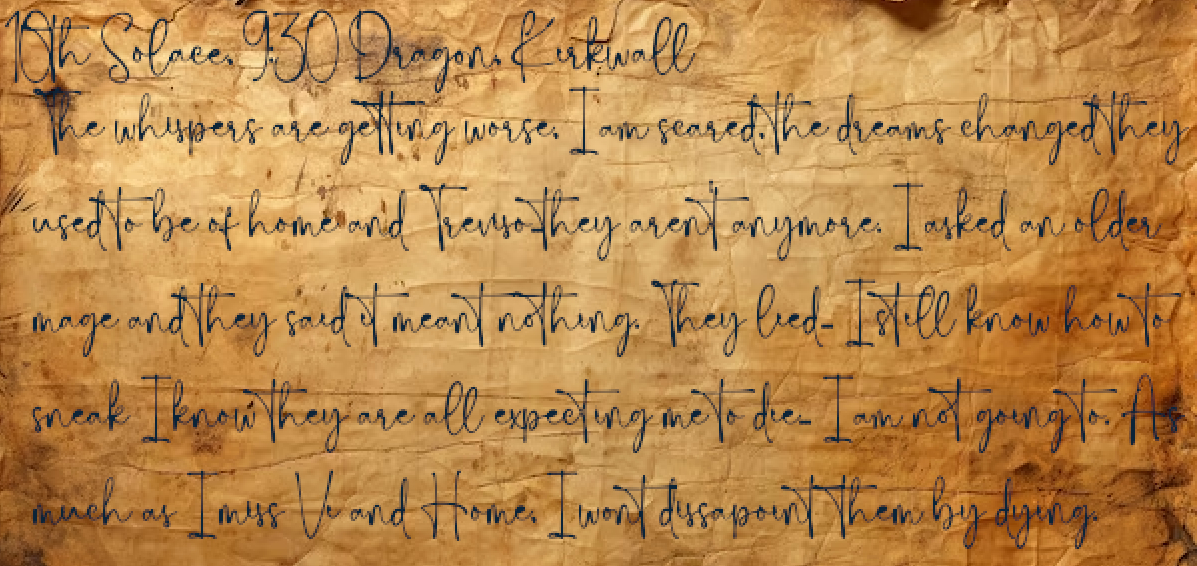 10th Solace, 9:30 Dragon, Kirkwall
The whispers are getting worse. I am scared. the dreams changed they
used to be of home and Treviso-they aren't anymore. I asked an older
mage and they said it meant nothing. They lied- I still know how to
sneak I know they are all expecting me to die- I am not going to. As
much as I miss Vi and Home. I wont dissapoint them by dying.